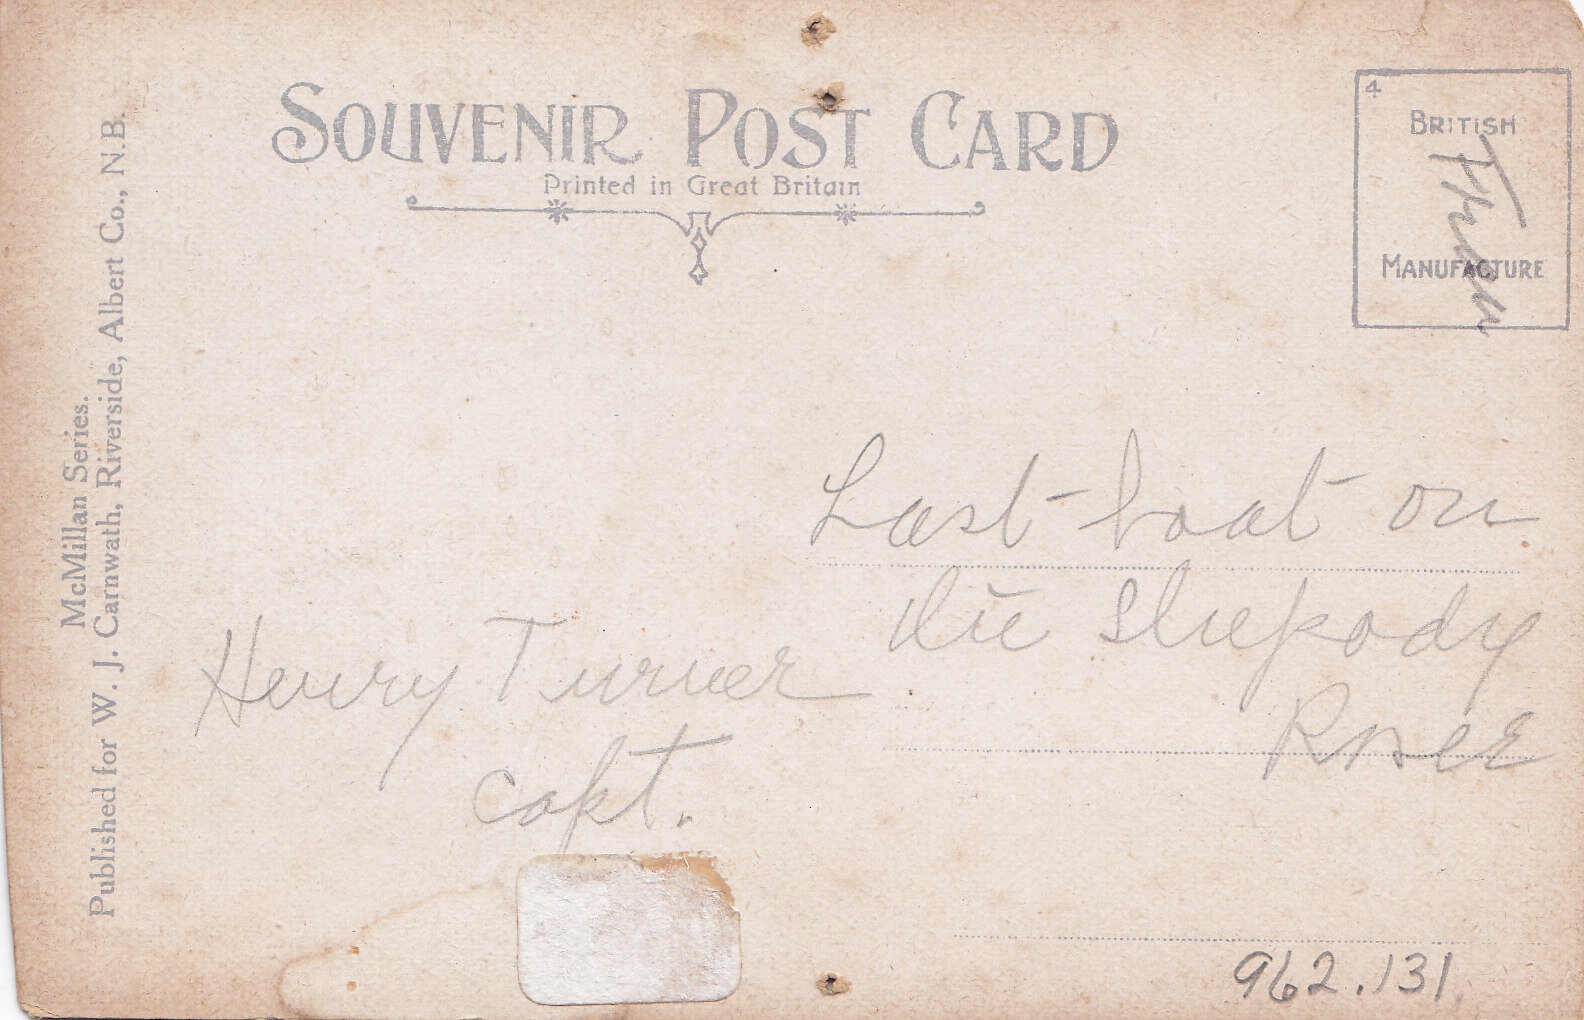 SOUVENIR POST CARD
Printed in Great Britain
4
BRITISH
MANUFACTURE
McMillan Series.
Published for W. J. Carnwath, Riverside, Albert Co., N.B.
Last boat on
the Shepody
River
Henry Turner
Capt.
962.131